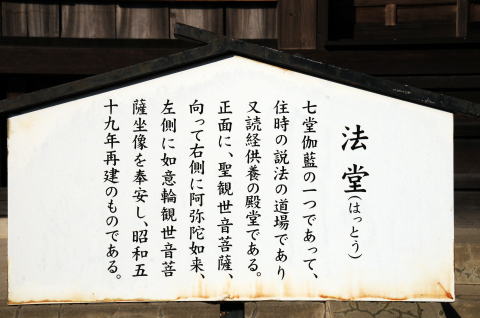 法堂(はっとう)
七堂伽藍の一つであって、
住時の説法の道場であり
又読経供養の殿堂である。
正面に、聖観世音菩薩、
向って右側に阿弥陀如来、
左側に如意輪観世音菩
薩坐像を奉安し、昭和五
十九年再建のものである。